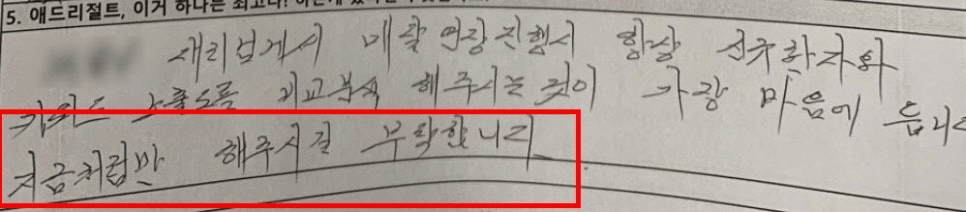 5. 애드리절트, 이거 하나는 최고다!
대리님께서 매달 연장진행시 항상 신규환자와
키워드 노출도를 비교분석 해주시는 것이 가장 마음에 듭니다
지금처럼만 해주시길 부탁합니다